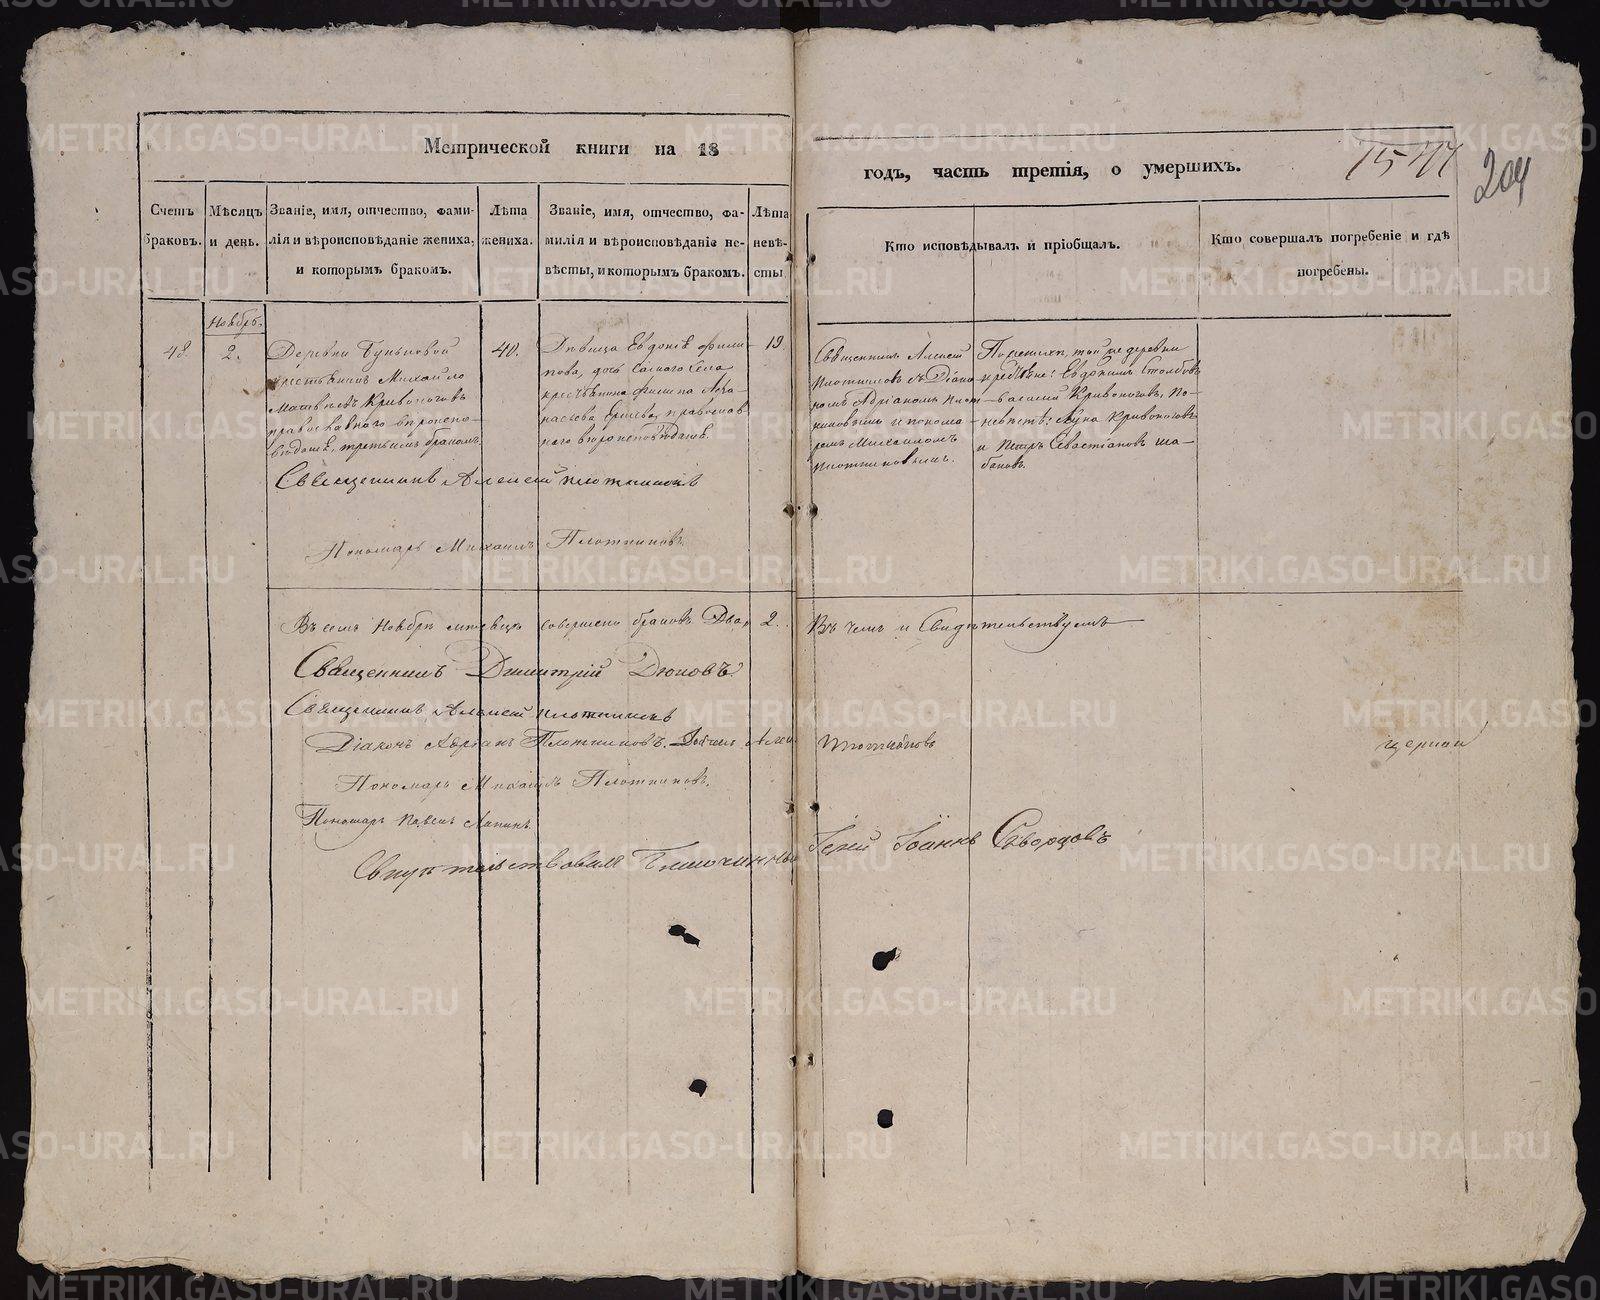 Метрической книги на 18
годъ, часть третія, о умершихъ.
204
Счетъ браковъ.
Мѣсяцъ и день.
Званіе, имя, отчество, фами-
лія и вѣроисповѣданіе жениха,
и которымъ бракомъ.
Лѣта жениха.
Званіе, имя, отчество, фа-
милія и вѣроисповѣданіе не-
вѣсты, и которымъ бракомъ.
Лѣта невѣ-
сты
Кто исповѣдывалъ и пріобщалъ.
Кто совершалъ погребеніе и гдѣ
погребены.
Ноябрь.
48.
2.
Деревни
крестьянинъ Михайло
Матвѣевъ Кривоноговъ
православнаго вѣроиспо-
вѣданія, третьимъ бракомъ.
40.
Дѣвица Евдокія Фили-
пова, дочь
крестьянина Филипа
православ-
наго вѣроисповѣданія.
19.
Священникъ Алексей
Плотниковъ съ Діако-
номъ Адріаномъ Плот-
никовымъ и понома-
ремъ Михаиломъ
Плотниковымъ.
По женихѣ, той же деревни
крестьяне: Евдокимъ Столбовъ
Василій Кривоноговъ, по
невѣстѣ: Лука Кривоноговъ
и Петръ Севастіановъ Ша-
бановъ.
Священникъ Алексей Плотниковъ
Пономарь Михаилъ Плотниковъ.
Въ семъ Ноябрѣ мѣсяцѣ совершено браковъ Два, 2. Въ чемъ и Свидѣтельствуемъ
Священникъ Димитрій Дюковъ
Священникъ Алексей Плотниковъ
Діаконъ Адріанъ Плотниковъ.
Плотниковъ
Пономарь Михаилъ Плотниковъ.
Пономарь Павелъ Лапинъ.
Свидѣтельствовалъ Благочинный Іерей Іоаннъ Скворцовъ
METRIKI.GASO-URAL.RU